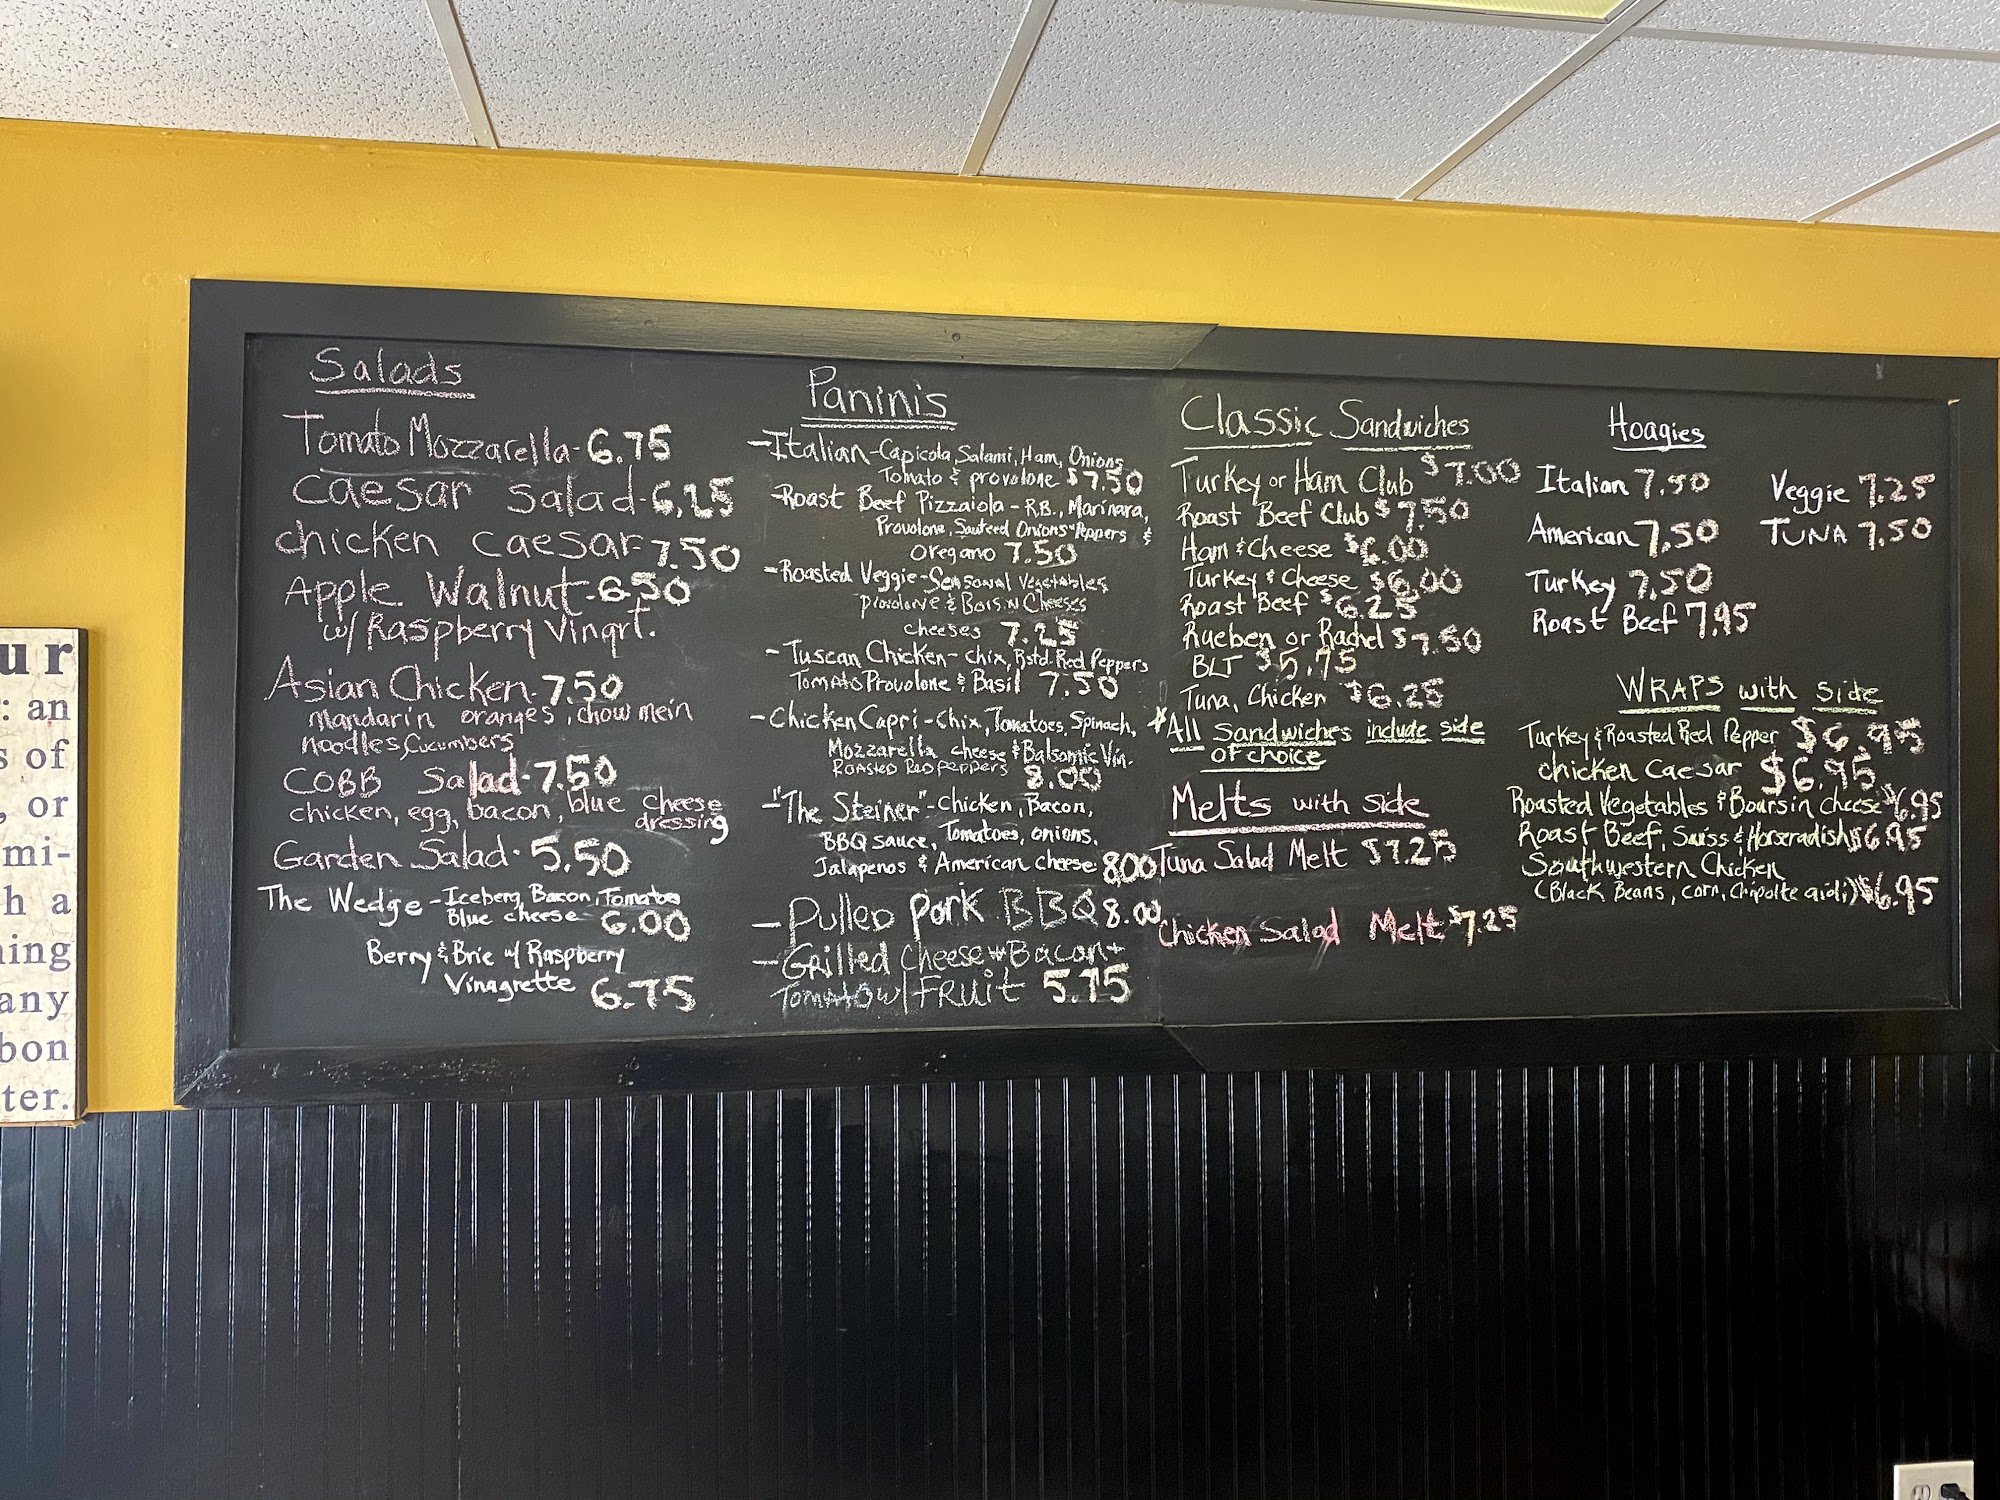 ur
: an
s of
, or
mi-
h a
ning
any
bon
ter.
Salads
Tomato Mozzarella - 6.75
Caesar Salad - 6.25
chicken caesar - 7.50
Apple Walnut - 6.50
w/ Raspberry Vingrt.
Asian Chicken - 7.50
mandarin oranges, chow mein
noodles, Cucumbers
COBB Salad - 7.50
chicken, egg, bacon, blue cheese
dressing
Garden Salad - 5.50
The Wedge - Iceberg, Bacon, Tomatoes
Blue cheese - 6.00
Berry & Brie w/ Raspberry
Vinagrette 6.75
Paninis
- Italian - Capicola, Salami, Ham, Onions
Tomato & provolone $7.50
- Roast Beef Pizzaiola - R.B., Marinara,
Provolone, Sauteed Onions Peppers &
oregano 7.50
- Roasted Veggie - Seasonal Vegetables
provolone & Boursin Cheeses
cheeses 7.25
- Tuscan Chicken - chix, Rstd. Red Peppers
Tomato Provolone & Basil 7.50
- Chicken Capri - Chix, Tomatoes, Spinach,
Mozzarella cheese & Balsamic Vin.
Roasted Red peppers 8.00
- "The Steiner" - Chicken, Bacon,
BBQ sauce, Tomatoes, onions.
Jalapenos & American cheese 8.00
- Pulled Pork BBQ 8.00
- Grilled Cheese + Bacon +
Tomato w/ FRUIT 5.75
Classic Sandwiches
Turkey or Ham Club $7.00
Roast Beef Club $7.50
Ham & Cheese $6.00
Turkey & Cheese $6.00
Roast Beef $6.25
Rueben or Rachel $7.50
BLT $5.75
Tuna, Chicken $6.25
* All Sandwiches include side
of choice
Melts with side
Tuna Salad Melt $7.25
Chicken Salad Melt $7.25
Hoagies
Italian 7.50
American 7.50
Turkey 7.50
Roast Beef 7.95
Veggie 7.25
TUNA 7.50
WRAPS with side
Turkey & Roasted Red Pepper $6.95
chicken Caesar $6.95
Roasted Vegetables & Boursin cheese $6.95
Roast Beef, Swiss & Horseradish $6.95
Southwestern Chicken
(Black Beans, corn, Chipolte aioli) $6.95